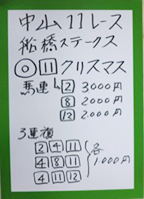 中山11レース
船橋ステークス
◎ 11 クリスマス
馬連 2 3000円
8 2000円
12 2000円
3連複
2 4 11
4 8 11
4 11 12
各1000円